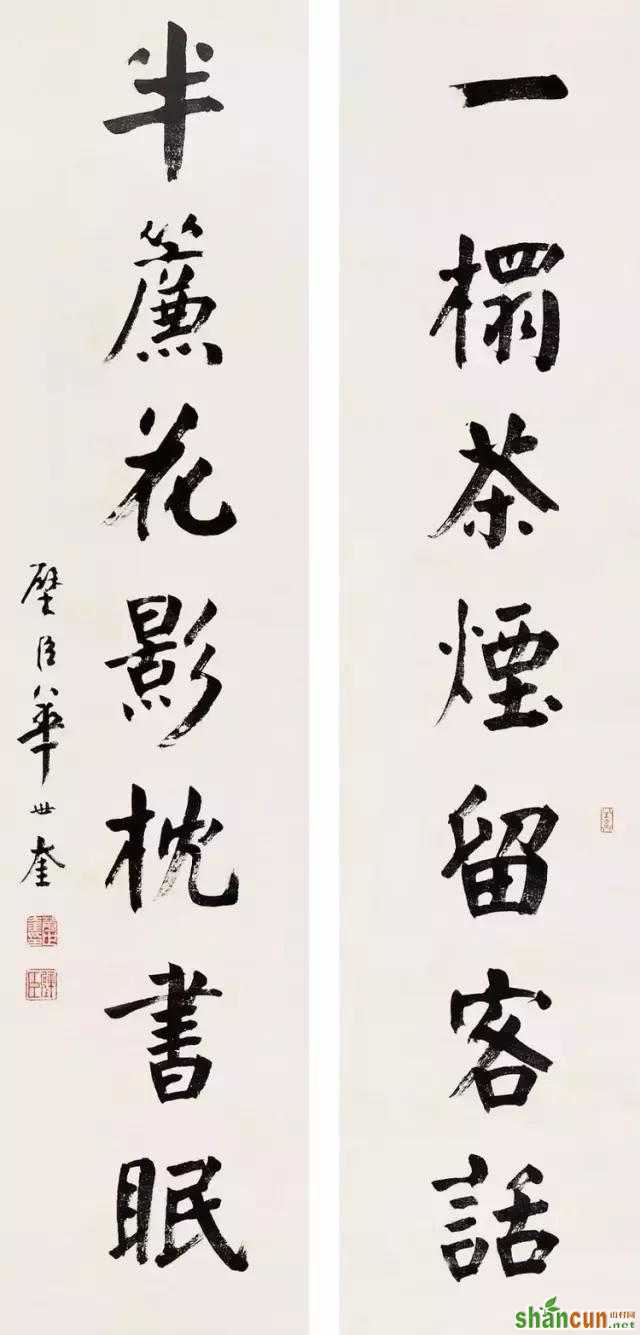 一榻茶煙留客話
半簾花影枕書眠
璧臣華世奎
山村网
shancun.net